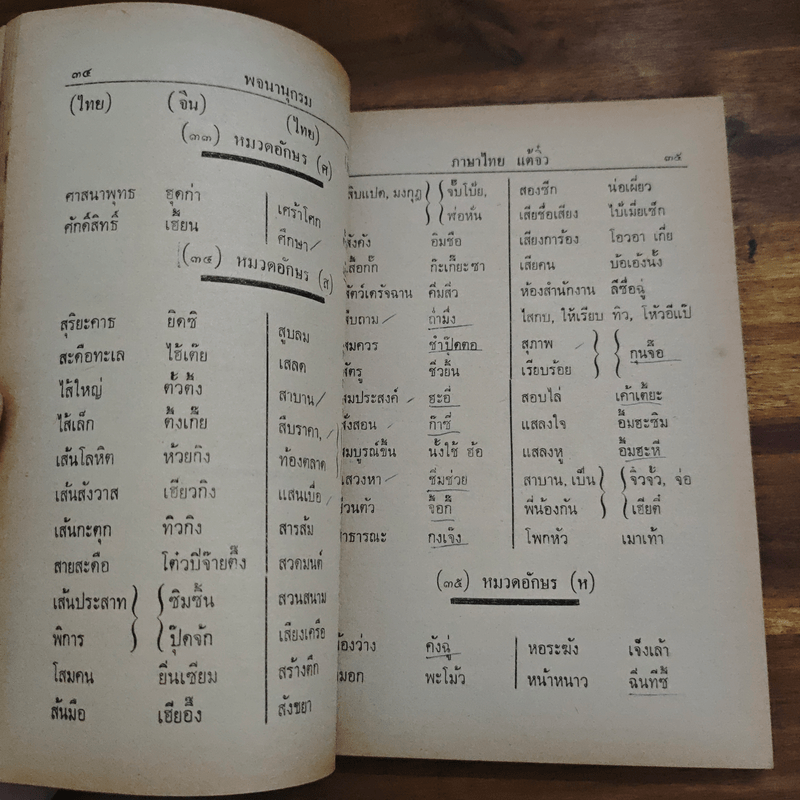 ๓๔ พจนานุกรม
(ไทย) (จีน) (ไทย)
(๓๓) หมวดอักษร (ศ)
ศาสนาพุทธ ฮุดก่า เศร้าโศก
ศักดิ์สิทธิ์ เฮี้ยน ศึกษา
(๓๔) หมวดอักษร (ส)
สุริยะคาธ ยิดซิ สูบลม
สะดือทะเล ไฮ้เต๊ย เสลด
ไส้ใหญ่ ตั้วตึ้ง สาบาน
ไส้เล็ก ตึ้งเกี๊ย สืบราคา,
เส้นโลหิต ห้วยกิง ท้องตลาด
เส้นสังวาส เฮียวกิง แสนเบื่อ
เส้นกะตุก ทิวกิง สารส้ม
สายสะดือ โต๋วปีจ๊ายตึ้ง สวดมนต์
เส้นประสาท ซิมซึ้น สวนสนาม
พิการ ปุ๊ดจัก เสียงเครือ
โสมคน ยิ่นเซียม สร้างตึก
ส้นมือ เฮียอึ๊ง สังขยา
ภาษาไทย แต้จิ๋ว ๓๕
สิบแปด, มงกุฎ จั๊บโป้ย, สองซีก น่อเผี่ยว
พ่อหั่น เสียชื่อเสียง ไป้เมี่ยเซ็ก
สังคัง อิมซือ เสียงการ้อง โอวอา เกี่ย
เสือกั๊ก กิะเกี๊ยะซา เสียคน บ้อเอ้งนั้ง
สัตว์เดรัจฉาน คีมสิ่ว ห้องสำนักงาน ลีซือฉู่
สืบถาม ถ่ำมึ่ง ไสกบ, ให้เรียบ ทิว, โหัวอีแป๊
สมควร ชำป๊ดตอ สุภาพ กุนจือ
ศัตรู ชีวยิ้น เรียบร้อย
สมประสงค์ ฮะอี่ สอบไล่ เค้าเต้ยะ
สั่งสอน ก๊าซี่ แสลงใจ อื้มฮะซิม
สมบูรณ์ขึ้น นั้งใช้ ฮ้อ แสลงหู อื้มฮะหี
แสวงหา ซิ่มช่วย สาบาน, เป็น จิวจั้ว, จ่อ
ส่วนตัว จื้อกี๊ พี่น้องกัน เฮียตี๋
สาธารณะ กงเจ๊ง โพกหัว เมาเท้า
(๓๕) หมวดอักษร (ห)
ห้องว่าง คังฉู่ หอระฆัง เจ็งเล้า
หมอก พะโม้ว หน้าหนาว ฉึ่นทีซี้